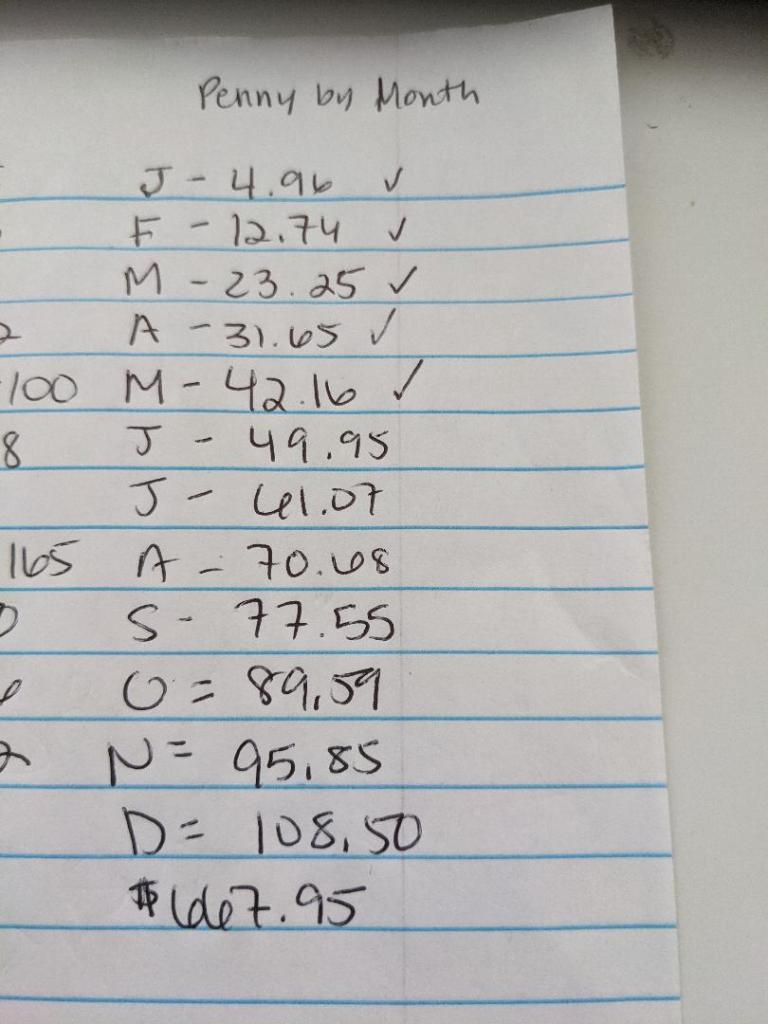 Penny by Month
J - 4.96 ✓
F - 12.74 ✓
M - 23.25 ✓
2 A - 31.65 ✓
100 M - 42.16 ✓
8 J - 49.95
J - 61.07
165 A - 70.68
S - 77.55
O = 89.59
N = 95.85
D = 108.50
$667.95